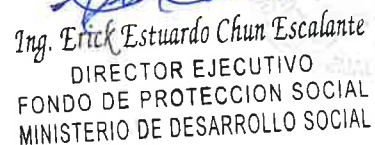 Ing. Erick Estuardo Chun Escalante
DIRECTOR EJECUTIVO
FONDO DE PROTECCION SOCIAL
MINISTERIO DE DESARROLLO SOCIAL